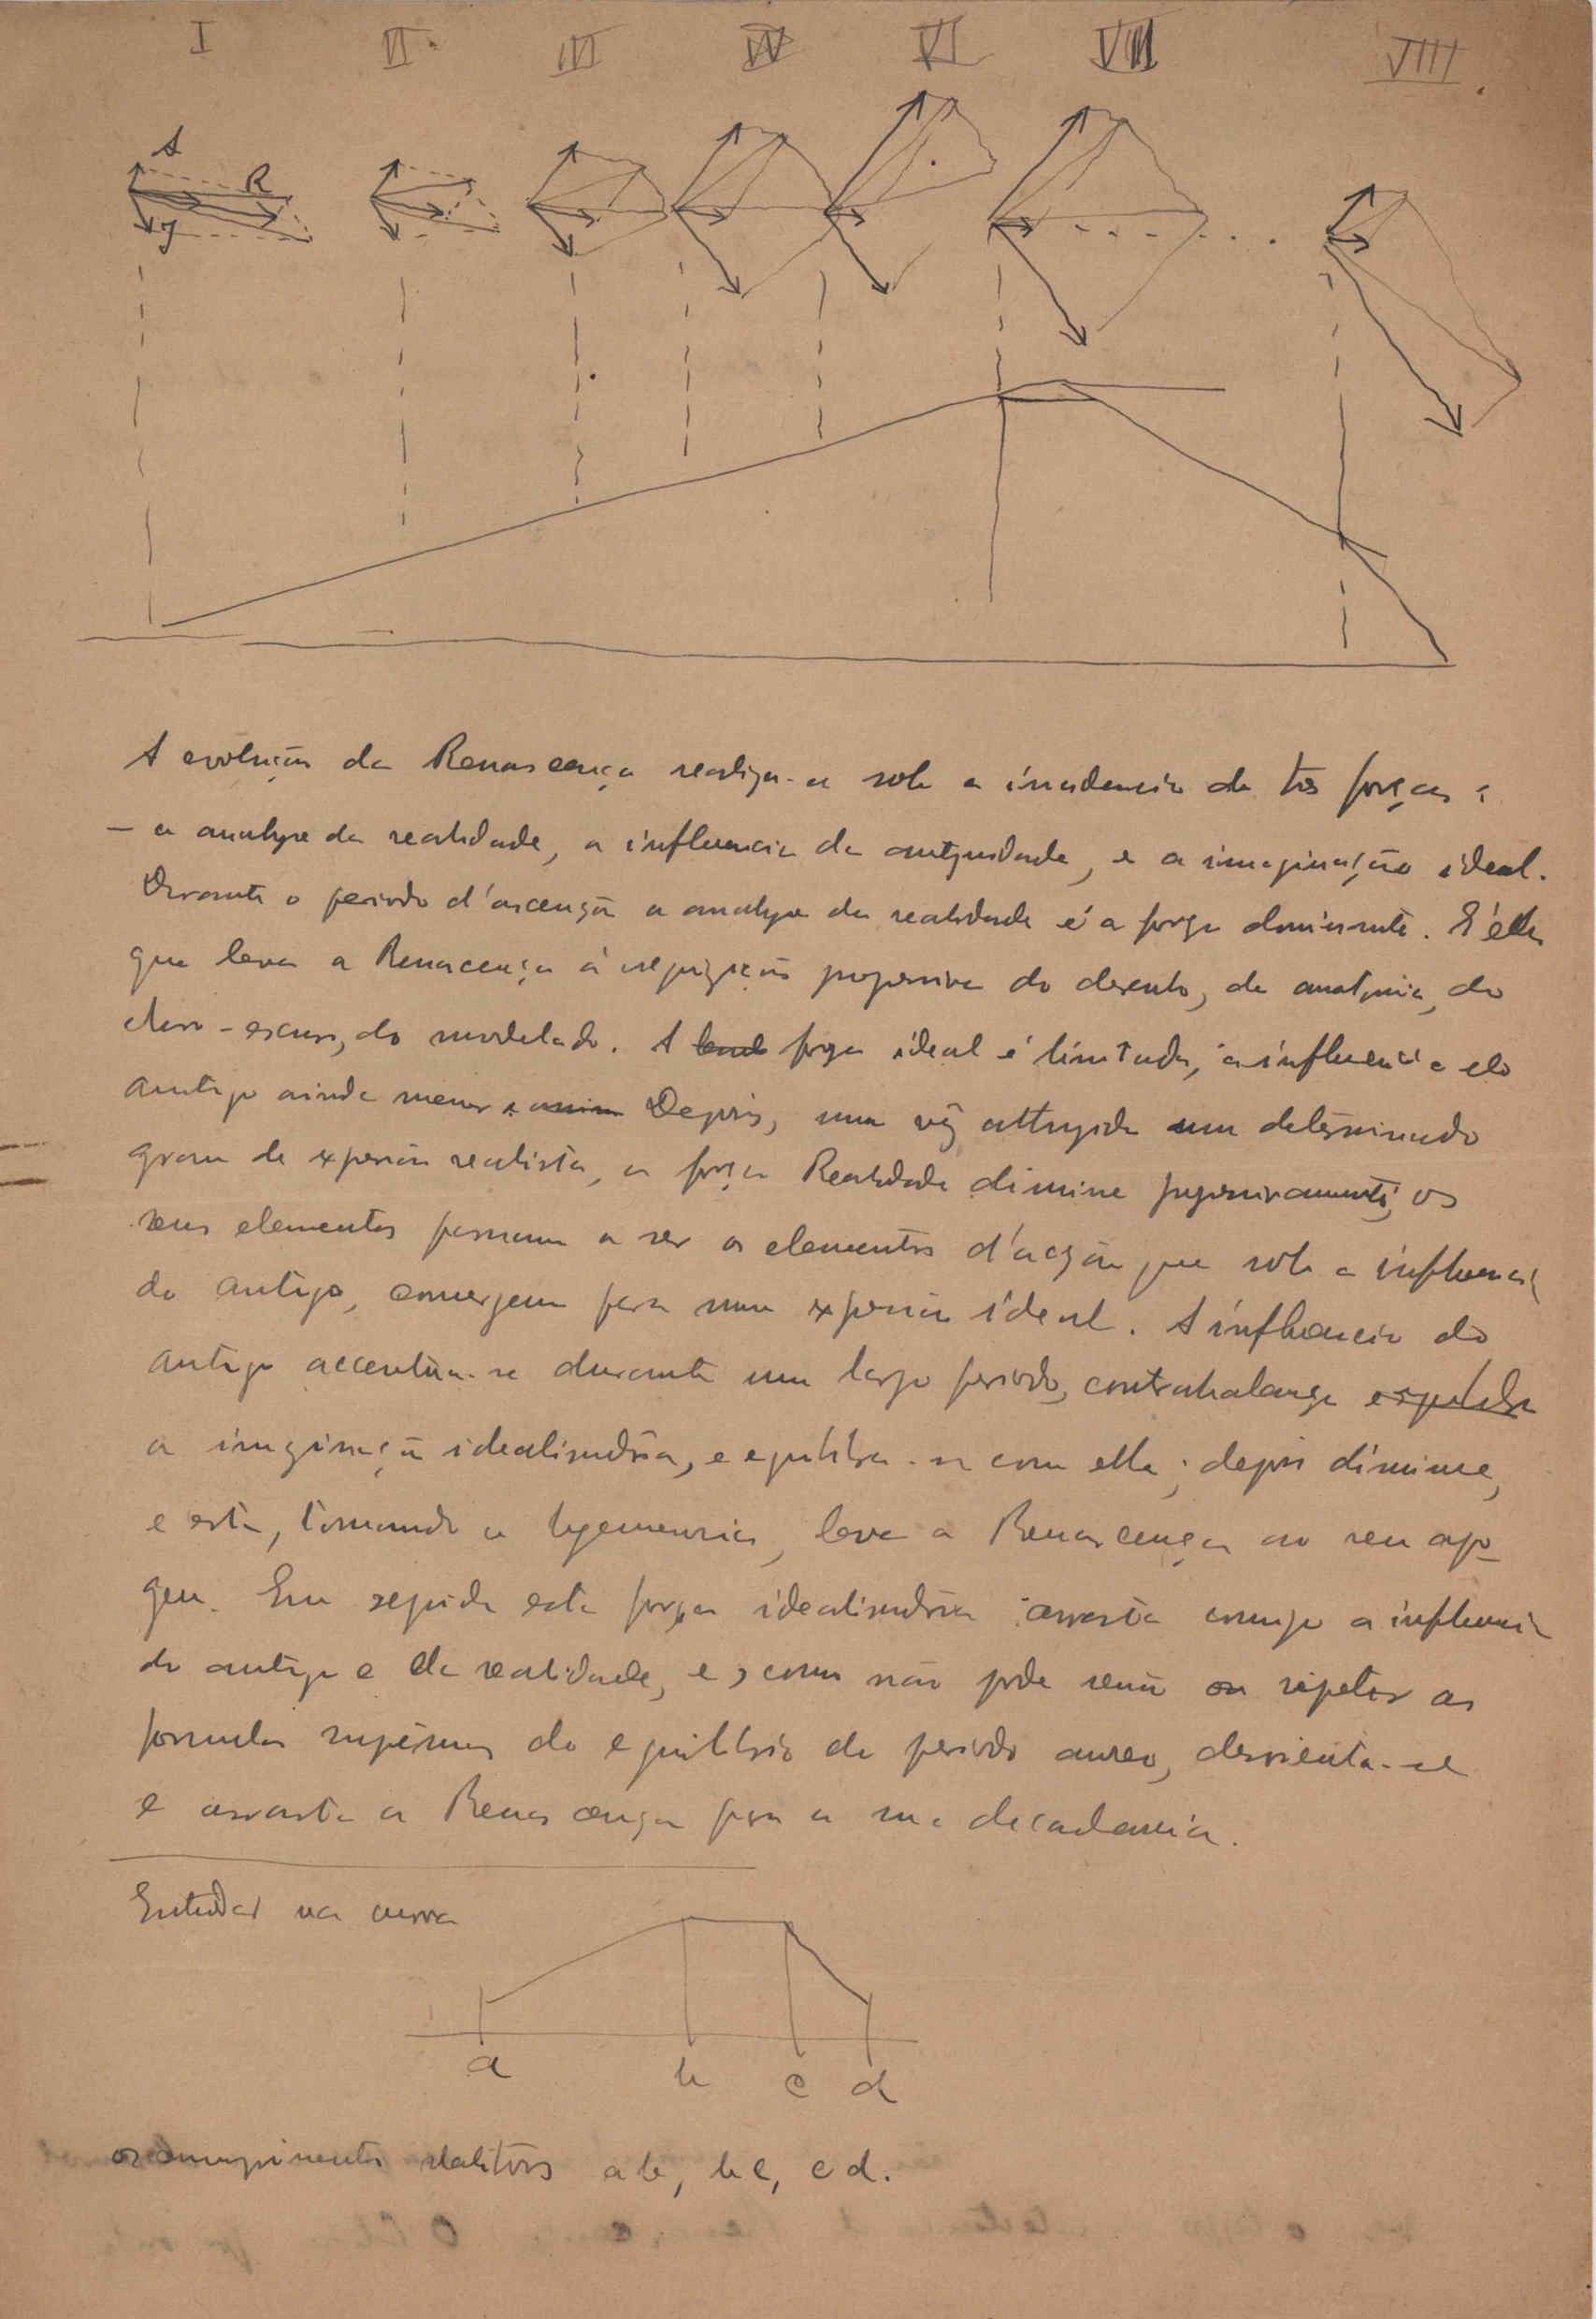 I II III IV VI VII VIII
A
R
J
A evolução da Renascença realiza-se sob a incidencia de tres forças:
– a analyse da realidade, a influencia da antiguidade, e a imaginação ideal.
Durante o periodo d'ascenção a analyse da realidade é a força dominante. É ella
que leva a Renascença á acquisição progressiva do desenho, da anatomia, do
claro-escuro, do modelado. A força ideal é limitada, a influencia do
antigo ainda menor Depois, uma vez attingido um determinado
grau de expressão realista, a força Realidade diminue progressivamente, os
seus elementos passam a ser os elementos d'acção que sob a influencia
do antigo, convergem para uma expressão ideal. A influencia do
antigo accentua-se durante um largo periodo, contrabalança
a imaginação idealisadora, e equilibra-se com ella; depois diminue,
e esta, tomando a hegemonia, leva a Renascença ao seu apo-
geu. Em seguida esta força idealisadora arrasta comsigo a influencia
do antigo e da realidade, e, como não pode senão repetir as
formulas supremas do equilibrio do periodo aureo, desorienta-se
e arrasta a Renascença para a sua decadencia.
Estudar na curva
a b c d
os comprimentos relativos ab, bc, cd.